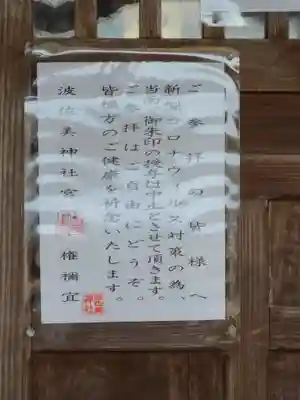 ご参拝の皆様へ
新型コロナウィルス対策の為、
当面御朱印の授与は中止とさせて頂きます。
ご参拝はご自由にどうぞ。
皆様方のご健康を祈念いたします。
波佐美神社宮司・権禰宜